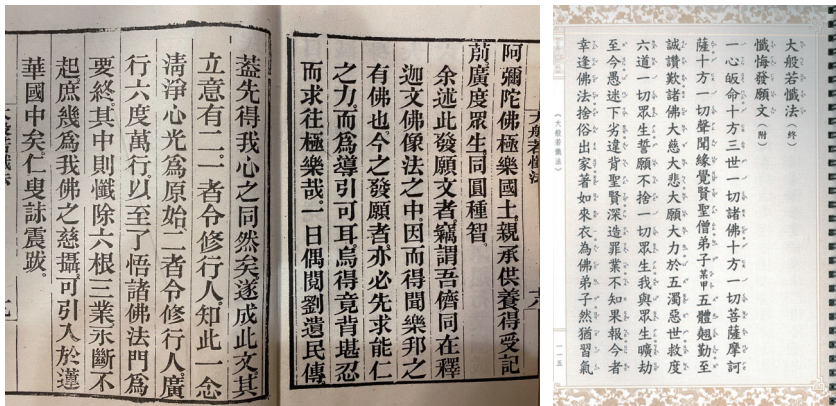 大般若懺法
阿彌陀佛極樂國土。親承供養得受記
莂廣度眾生同圓種智。
余述此發願文者竊謂吾儕同在釋
迦文佛像法之中。因而得聞樂邦之
有佛也。今之發願者亦必先求能仁
之力。而爲導引可耳。烏得竟背堪忍
而求往極樂哉。一日偶閱劉遺民傳
蓋先得我心之同然矣。遂成此文。其
立意有二。一者令修行人。知此一念
清淨心光爲原始。二者令修行人。廣
行六度萬行。以至了悟諸佛法門爲
要終。其中則懺除六根三業。永斷不
起。庶幾爲我佛之慈攝。可引入於蓮
華國中矣。仁叟詠震跋。
大般若懺法（終）
懺悔發願文（附）
一心皈命十方三世一切諸佛十方一切菩薩摩訶
薩十方一切聲聞緣覺賢聖僧弟子某甲五體翹勤至
誠讚歎諸佛大慈大悲大願大力於五濁惡世救度
六道一切眾生誓願不捨一切眾生我與眾生曠劫
至今愚迷下劣違背聖賢深造罪業不知果報今者
幸逢佛法捨俗出家著如來衣為佛弟子然猶習氣
《大般若懺法》
一一五